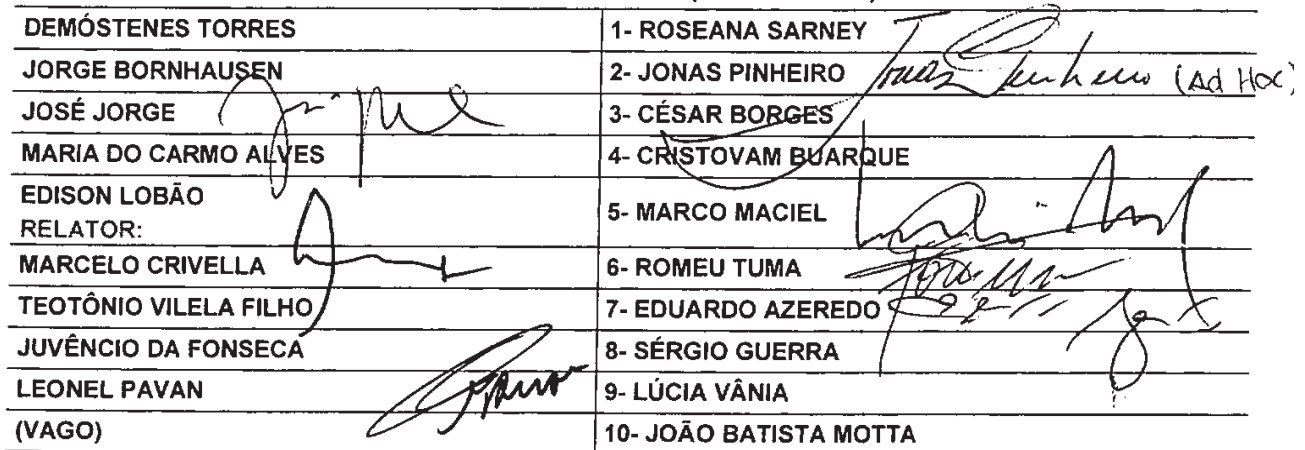 DEMÓSTENES TORRES 1- ROSEANA SARNEY
JORGE BORNHAUSEN 2- JONAS PINHEIRO Jonas Pinheiro (Ad Hoc)
JOSÉ JORGE 3- CÉSAR BORGES
MARIA DO CARMO ALVES 4- CRISTOVAM BUARQUE
EDISON LOBÃO
RELATOR: 5- MARCO MACIEL
MARCELO CRIVELLA 6- ROMEU TUMA
TEOTÔNIO VILELA FILHO 7- EDUARDO AZEREDO
JUVÊNCIO DA FONSECA 8- SÉRGIO GUERRA
LEONEL PAVAN 9- LÚCIA VÂNIA
(VAGO) 10- JOÃO BATISTA MOTTA